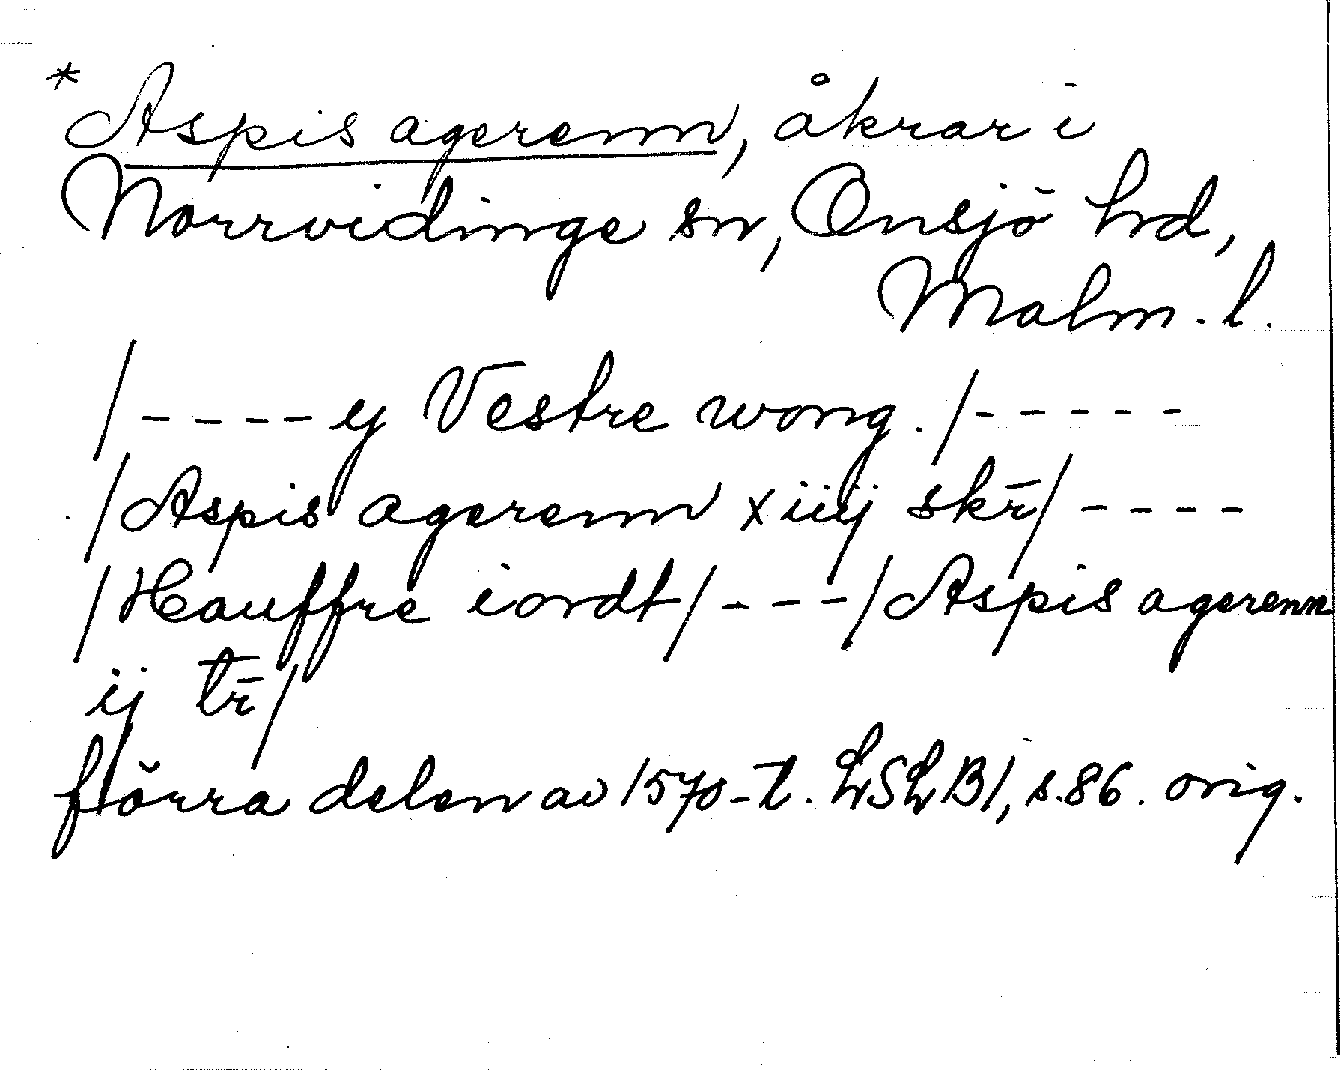 *Aspis agerenn, åkrar i
Norrvidinge sn, Onsjö hd,
Malm. l.
/----ij Vestre wong./-----
/Aspis agerenn xiiij skr̄/----
/Hauffre iordt/---/Aspis agerenn
ij tr̄/
förra delen av 1570-t. LSLB1, s.86. orig.